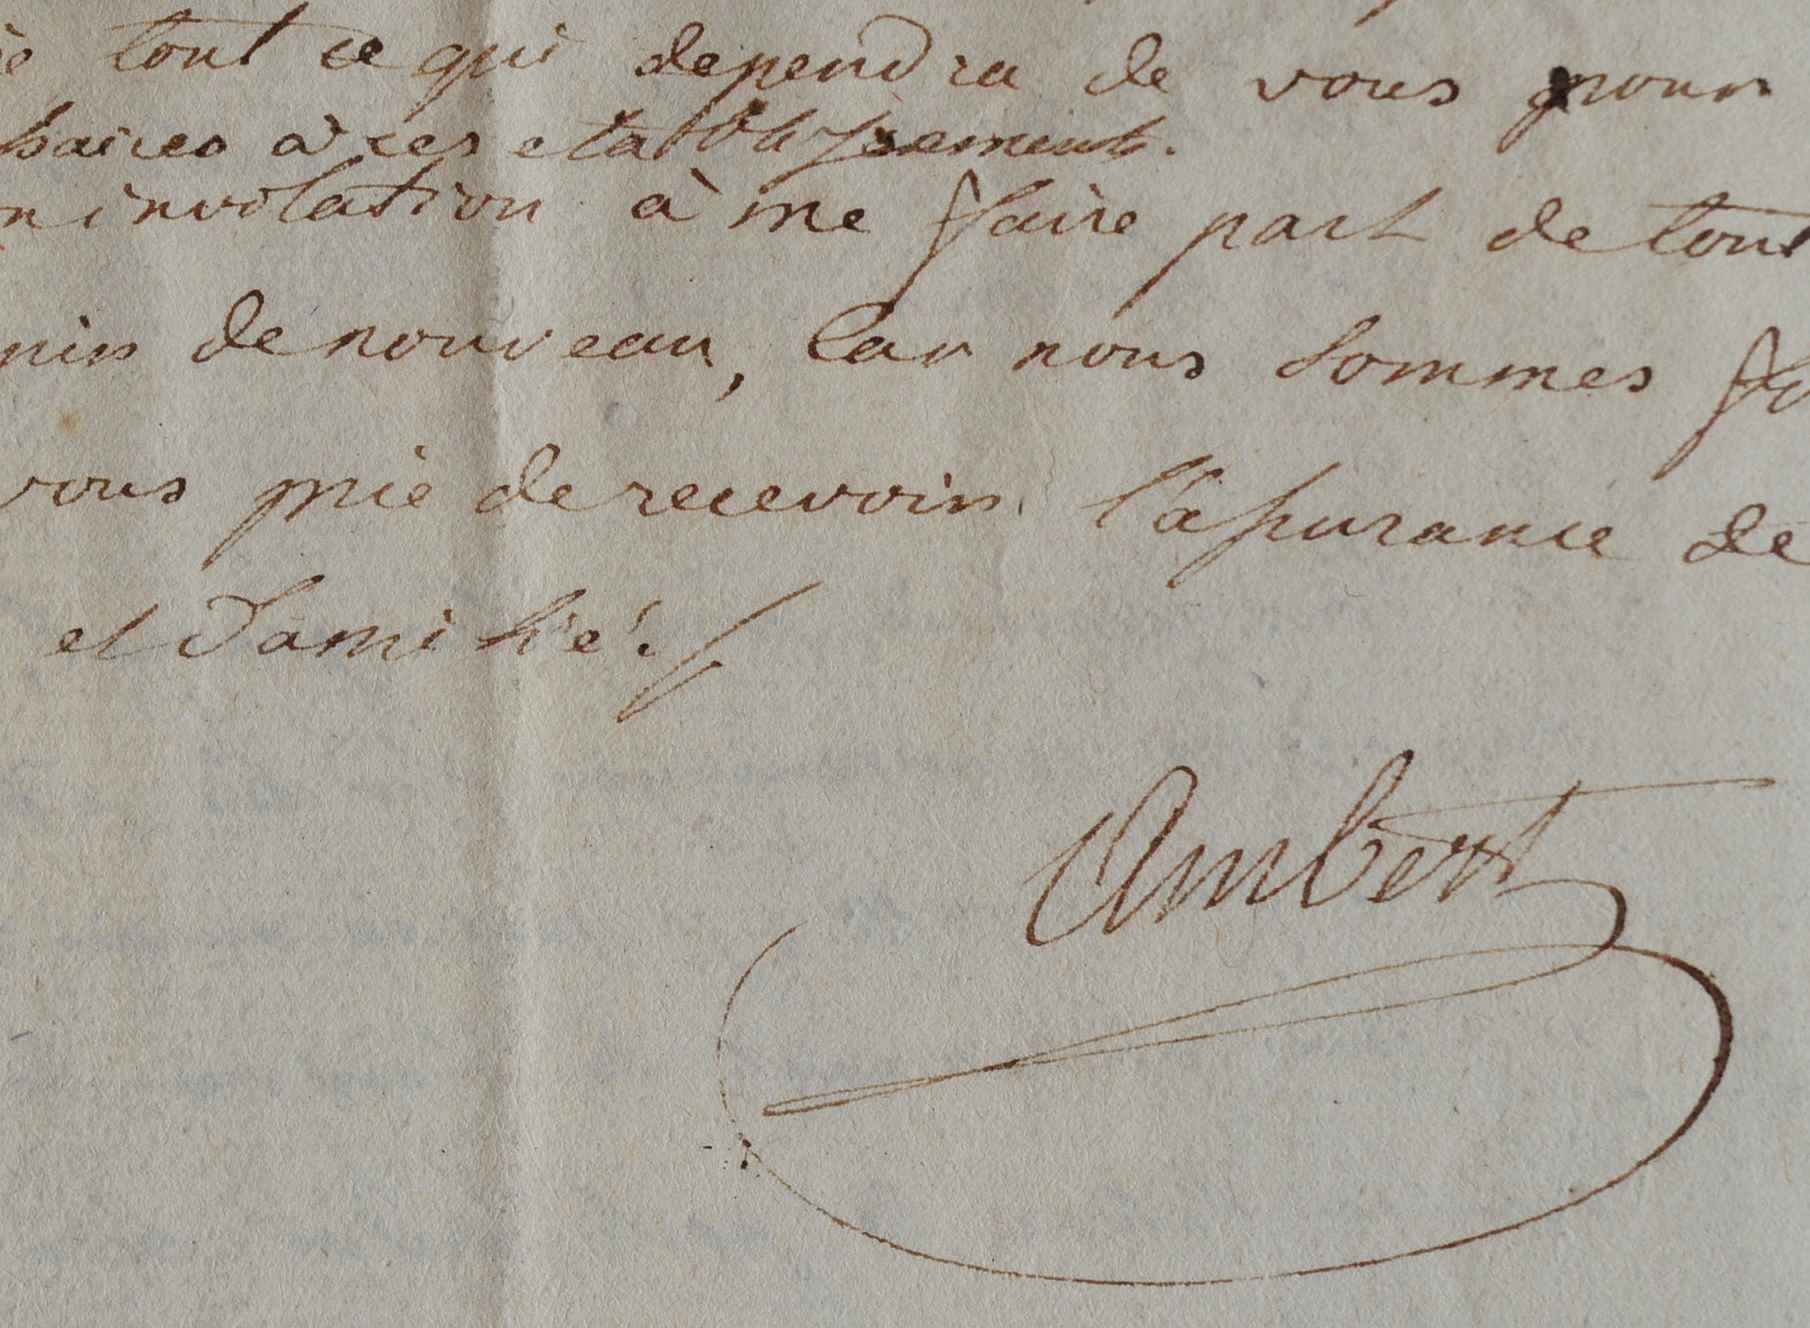 tout ce qui dependra de vous pour
saires à ces etablissements.
invitation à me faire part de tout
de nouveau, Car nous sommes
vous prie de recevoir l'assurance de
et d'amitié ./
Ambert